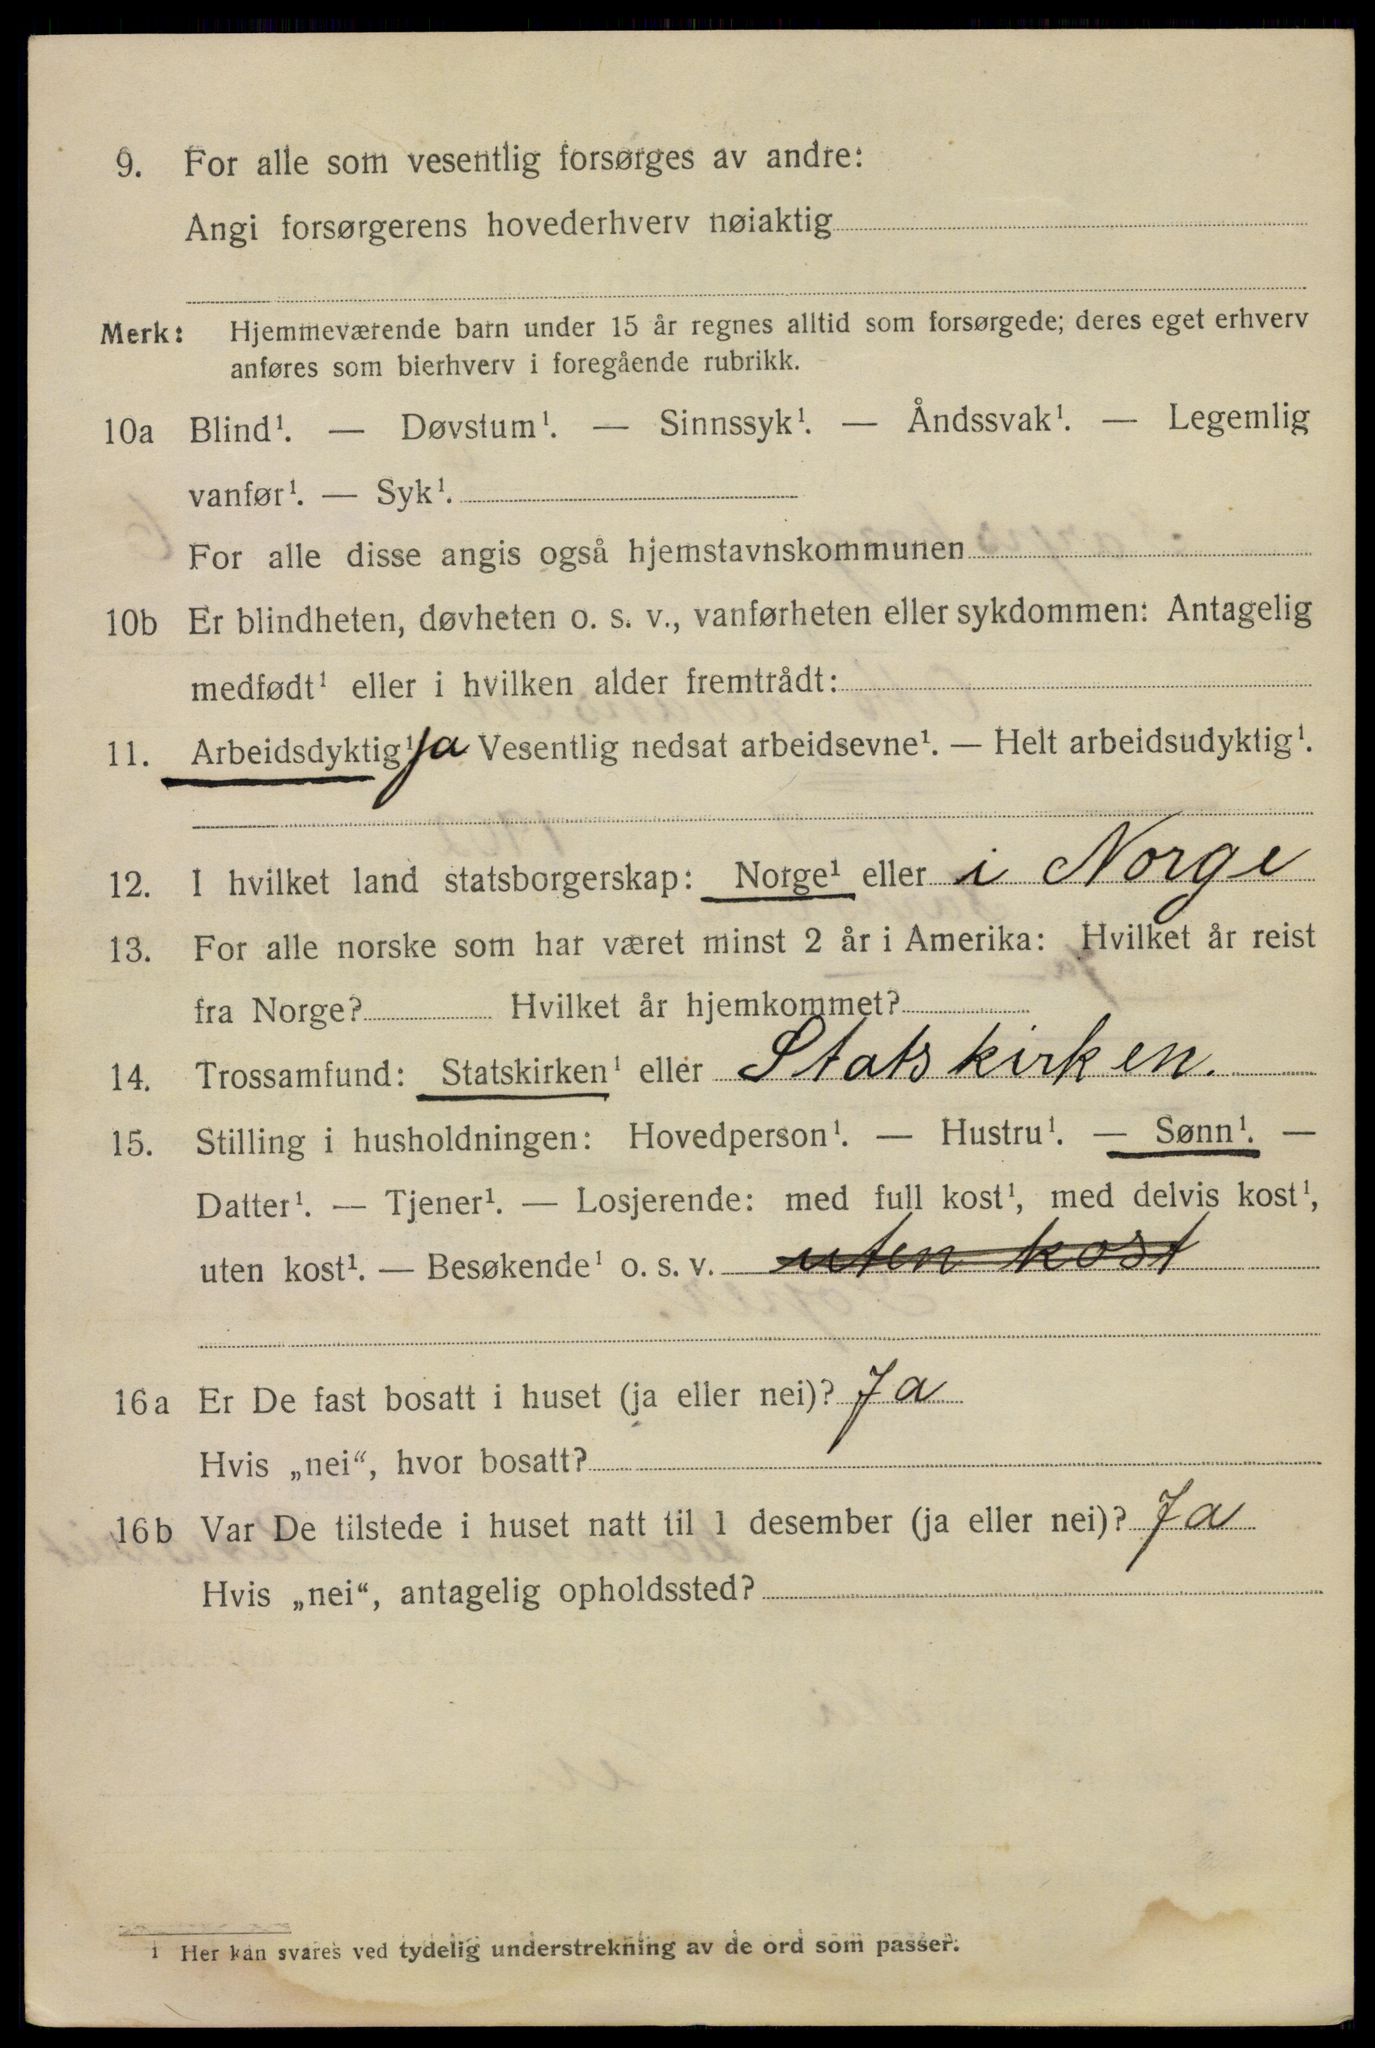 9. For alle som vesentlig forsørges av andre:
Angi forsørgerens hovederhverv nøiaktig
Merk: Hjemmeværende barn under 15 år regnes alltid som forsørgede; deres eget erhverv
anføres som bierhverv i foregående rubrikk.
10a Blind¹. — Døvstum¹. — Sinnssyk¹. — Åndssvak¹. — Legemlig
vanfør¹. — Syk¹.
For alle disse angis også hjemstavnskommunen
10b Er blindheten, døvheten o. s. v., vanførheten eller sykdommen: Antagelig
medfødt¹ eller i hvilken alder fremtrådt:
11. Arbeidsdyktig¹ Ja Vesentlig nedsat arbeidsevne¹. — Helt arbeidsudyktig¹.
12. I hvilket land statsborgerskap: Norge¹ eller i Norge
13. For alle norske som har været minst 2 år i Amerika: Hvilket år reist
fra Norge? Hvilket år hjemkommet?
14. Trossamfund: Statskirken¹ eller Statskirken.
15. Stilling i husholdningen: Hovedperson¹. — Hustru¹. — Sønn¹. —
Datter¹. — Tjener¹. — Losjerende: med full kost¹, med delvis kost¹,
uten kost¹. — Besøkende¹ o. s. v. uten kost
16a Er De fast bosatt i huset (ja eller nei)? Ja
Hvis „nei“, hvor bosatt?
16b Var De tilstede i huset natt til 1 desember (ja eller nei)? Ja
Hvis „nei“, antagelig opholdssted?
1 Her kan svares ved tydelig understrekning av de ord som passer.